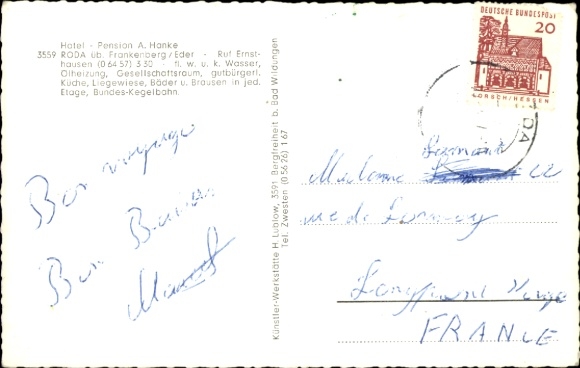 Hotel - Pension A. Hanke
3559 RODA üb. Frankenberg/Eder - Ruf Ernst-
hausen (0 64 57) 3 30 - fl. w. u. k. Wasser,
Ölheizung, Gesellschaftsraum, gutbürgerl.
Küche, Liegewiese, Bäder u. Brausen in jed.
Etage, Bundes-Kegelbahn.
Bon voyage
Bon
Künstler-Werkstätte H. Lublow, 3591 Bergfreiheit b. Bad Wildungen
Tel. Zwesten (0 56 26) 1 67
DEUTSCHE BUNDESPOST
20
LORSCH/HESSEN
RODA
Madame 22
rue de
FRANCE